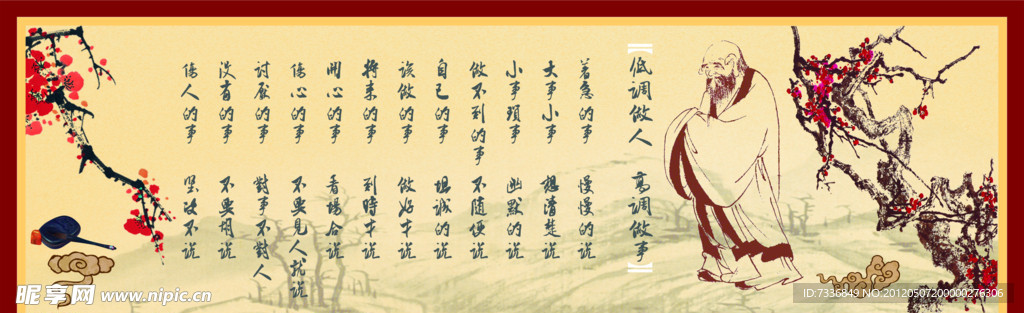 【低调做人 高调做事】
着急的事 慢慢的说
大事小事 想清楚说
小事琐事 幽默的说
做不到的事 不随便说
自己的事 坦诚的说
该做的事 做好才说
将来的事 到時才说
開心的事 看場合说
傷心的事 不要見人就说
討厭的事 對事不對人
没有的事 不要胡说
傷人的事 坚决不说
昵享网 www.nipic.cn
ID:7336849 NO:20120507200000276306